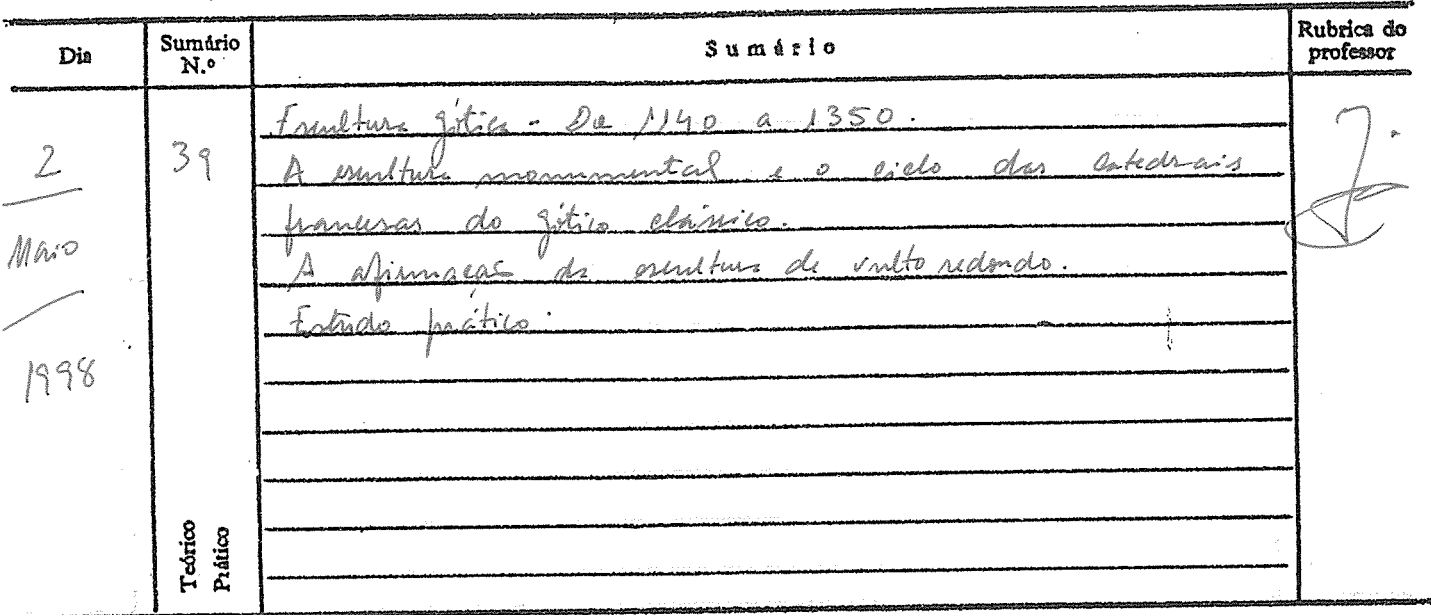 Dia
Sumário N.º
Sumário
Rubrica do professor
2
Maio
1998
39
Escultura gótica - De 1140 a 1350.
A escultura monumental e o ciclo das catedrais
francesas do gótico clássico.
A afirmação da escultura de vulto redondo.
Estudo prático.
Teórico
Prático